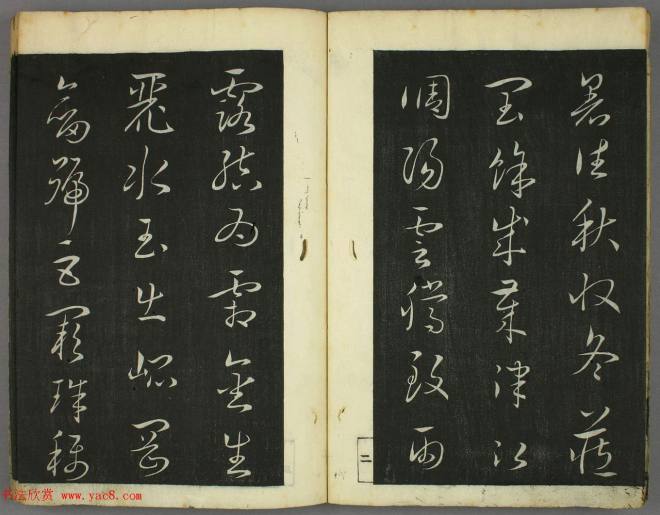 暑往秋収冬蔵
閏餘成歳律呂
調陽雲騰致雨
露結為霜金生
麗水玉出崐岡
劒號巨闕珠稱
二
书法欣赏 www.yac8.com